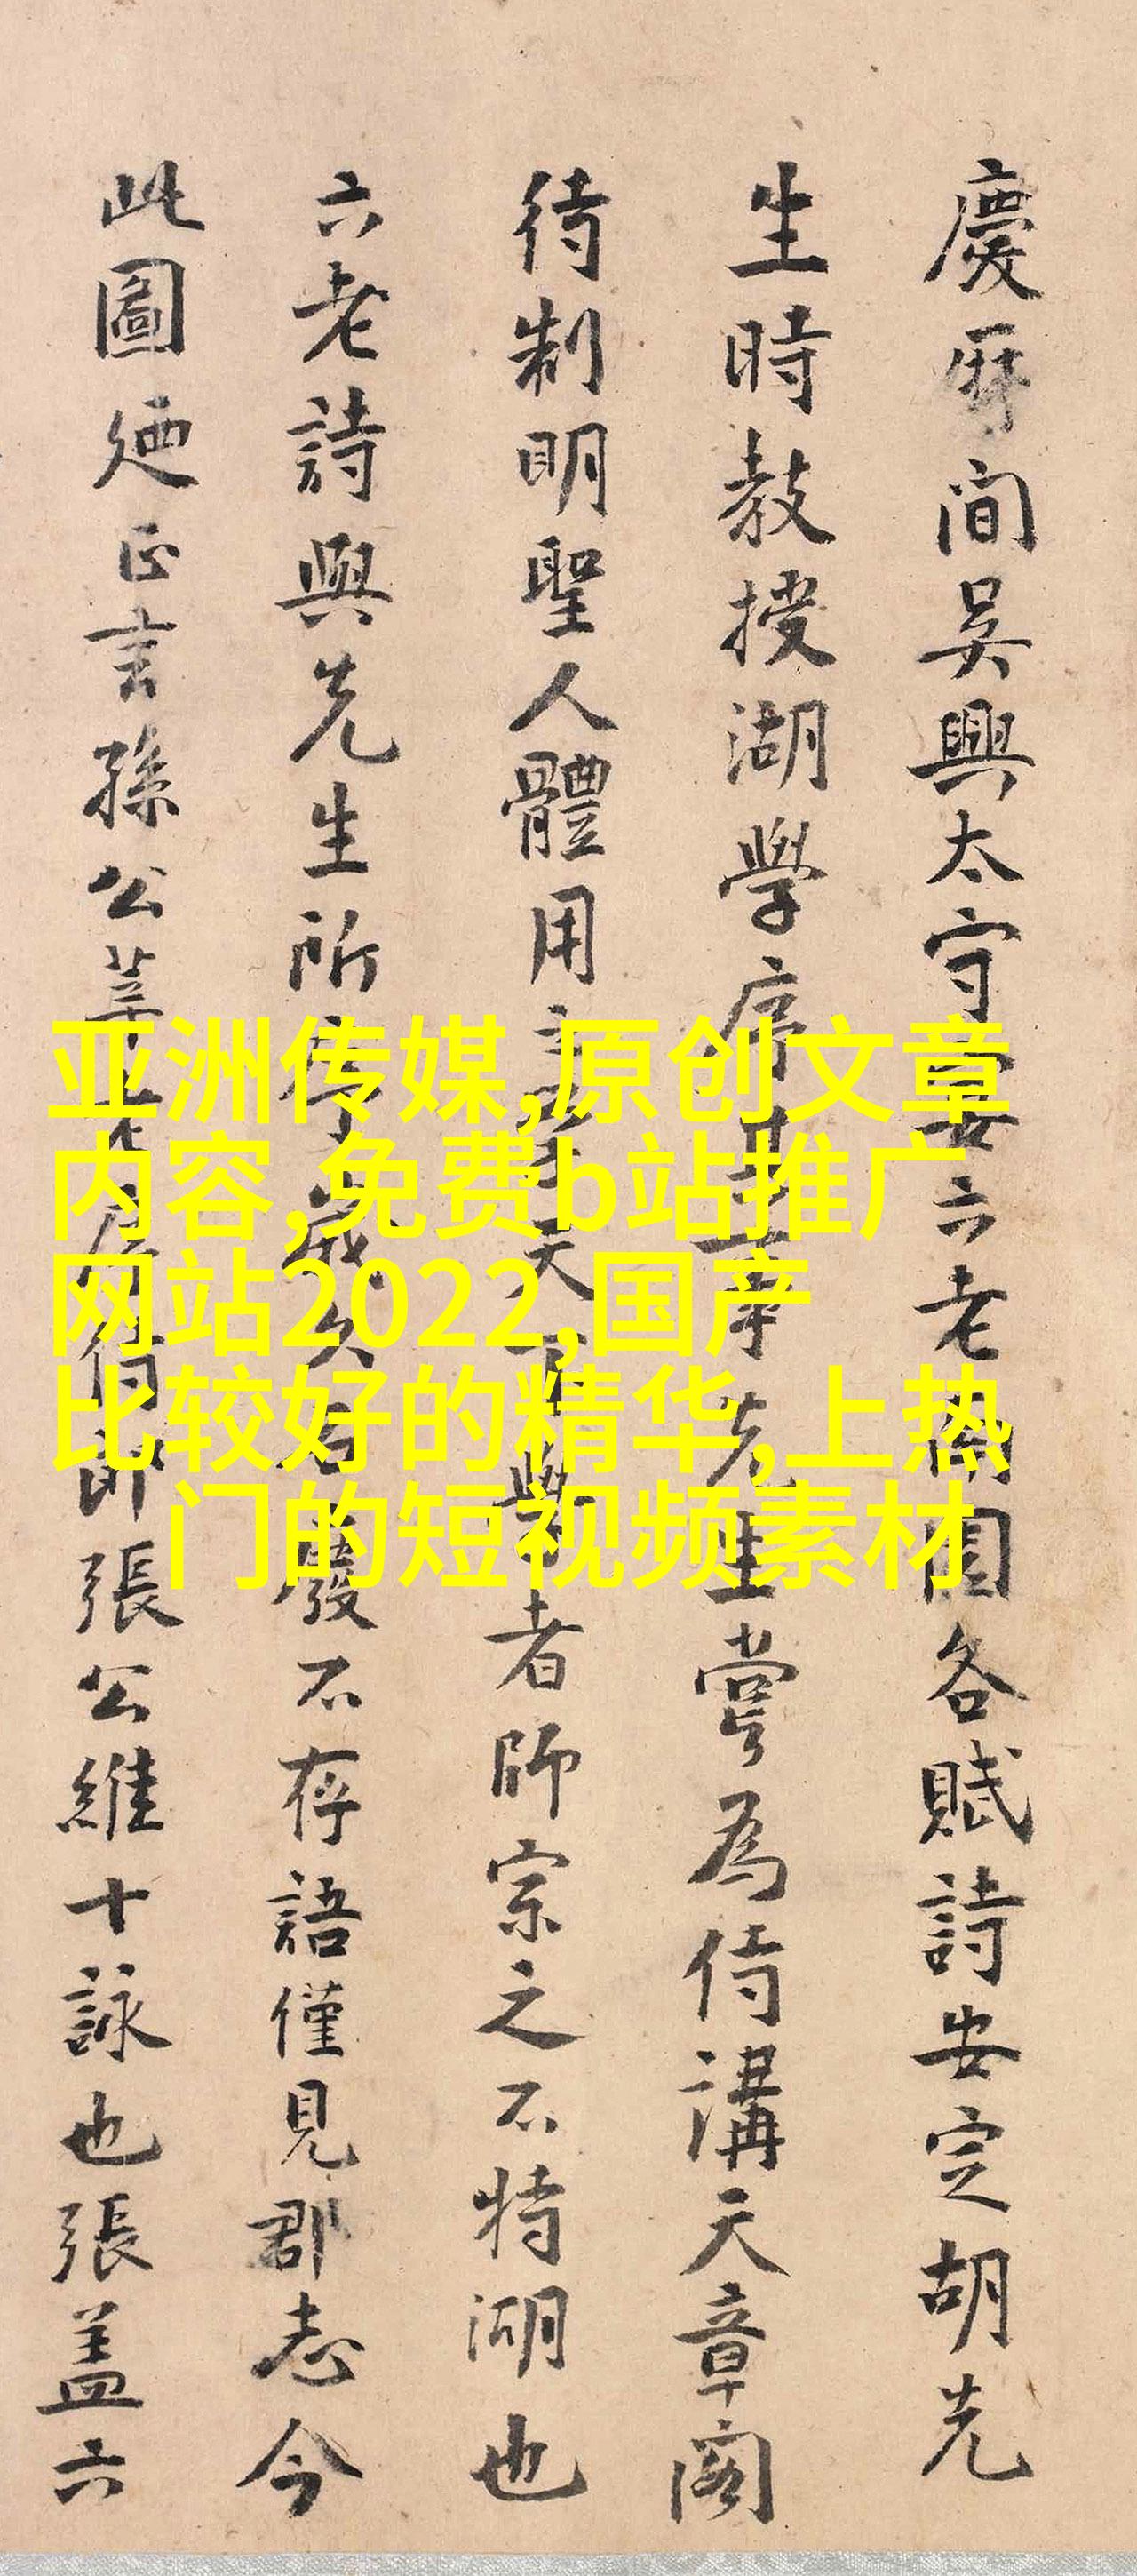 慶曆間吳興太守宴六老南園各賦詩安定胡先
生時教授湖學序其事先生嘗為侍講天章閣
待制明聖人體用之學天下學者師宗之不特湖也
六老詩與先生所序歲久石廢不存語僅見郡志今
此圖廼正言孫公莘老序侍郎張公維十詠也張蓋六
亚洲传媒,原创文章
内容,免费b站推广
网站2022,国产
比较好的精华,上热
门的短视频素材